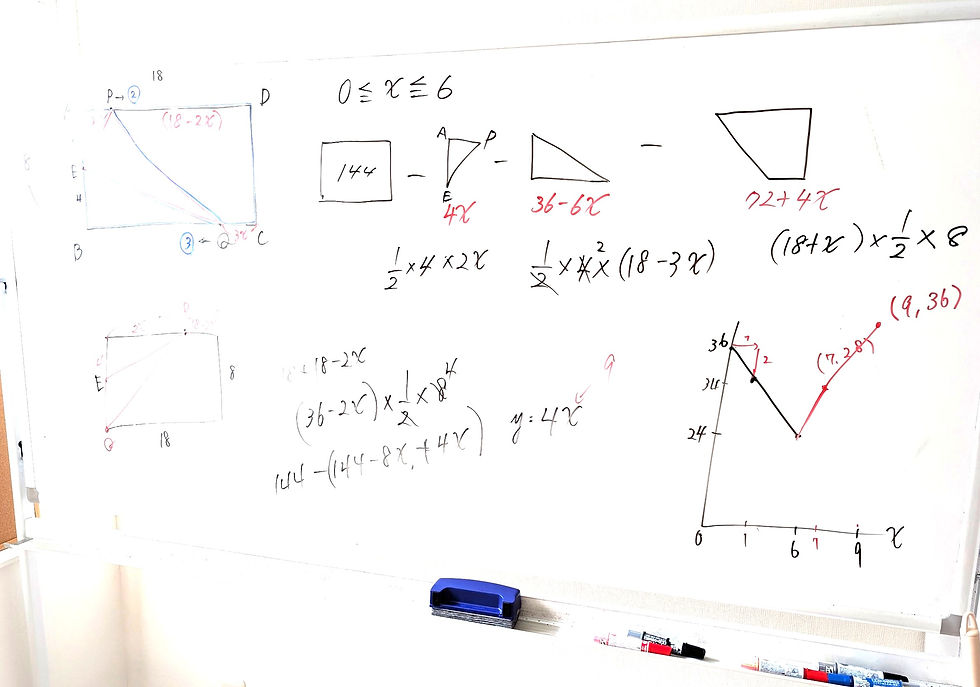 18
P→②
D
(18-2x)
E
4
B
③←Q
3x
C
0≦x≦6
144
-
A
P
E
4x
-
36-6x
-
72+4x
1/2×4×2x
1/2×4×(18-3x)
2
(18+x)×1/2×8
E
8
Q
18
18-2x
(36-2x)×1/2×8
4
144-(144-8x+4x)
y=4x
9
(9,36)
(7,28)
36
1
2
34
24
0
1
6
7
9
x